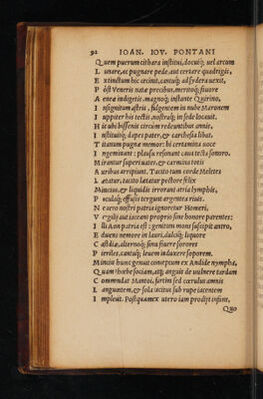 92 IOAN. IOV. PONTANI
Quem puerum cithara institui, docuiq; uel arcum
Lunare, ac pugnare pede, aut certare quadrigis,
Extinctum hic cecinit, cantuq; ad sydera uexit,
Post Veneris natæ precibus, meritoq; fiuore
Aeneæ indigetis, magnoq; instante Quirino,
Insignitum astris, fulgentem in nube Maronem
Iuppiter his tectis, nostraq; in sede locauit.
Hic ubi bissenis circum redeuntibus annis,
Instituitq; dapes pater, &
Titanum pugnæ memor: hi certamina uoce
Ingeminant: plausu resonant caua tecta sonoro.
Mirantur superi uates, & carmina totis
Auribus arripiunt. Tacito tum corde Meletes
Lætatur, tacito lætatur pectore felix
Mincius, & liquidis errorant atria lymphis,
Poculaq; effusis tergunt argentea riuis.
Nec uero nostri patria ignoretur Homeri,
Vergilij aut iaceant proprio sine honore parentes:
Illi Aon patria est: genitum mons suscipit antro,
Educunt nemore in lauri, dulciq; liquore
Castalia, alternoq; sinu fouere sorores
Pierides, cantuq; leuem induxere soporem.
Mincius hunc genuit conceptum ex Andide nympha,
Quam thorbe sociam, atq; anguis de uulnere tardam
Commendat Mantoi, sertim sed cærulus amnis
Languentem, & sola tacitus sub rupe iacentem
Impleuit. Postquam ex utero iam prodijt infans,
Quo